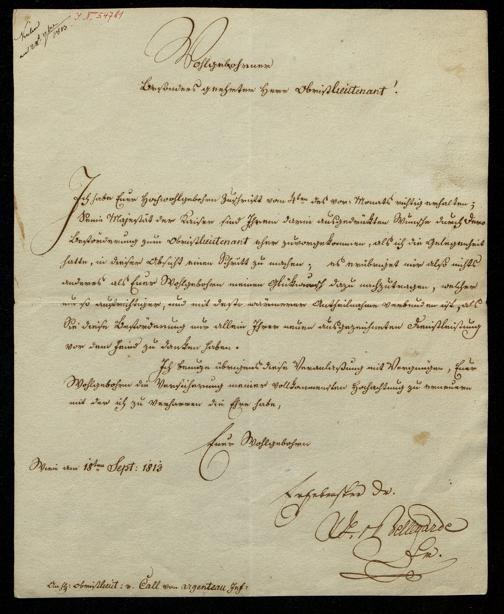 I. N. 54761
1813
Wohlgebohrner
Besonders geehrter Herr Obristlieutenant!
Ich habe Euer Hochwohlgebohrn Zuschrift vom des vor. Monats richtig erhalten;
Seine Majestät der Kaiser sind Ihrem darin ausgedrückten Wunsche durch Dero
Beförderung zum Obristlieutenant eher zuvorgekommen, als ich die Gelegenheit
hatte, in dieser Absicht einen Schritt zu machen; es erübriget mir also nichts
anderes als Euer Wohlgebohrn meinen Glückwunsch dazu nachzutragen, welcher
um so aufrichtiger, und mit desto wärmerer Antheilnahme verbunden ist, als
Sie diese Beförderung nur allein Ihrer neuen ausgezeichneten Dienstleistung
vor dem Feind zu danken haben.
Ich benuze übrigens diese Veranlaßung mit Vergnügen, Euer
Wohlgebohrn die Versicherung meiner vollkommensten Hochachtung zu erneuern
mit der ich zu verharren die Ehre habe,
Euer Wohlgebohrn
Wien am 18ten Sept: 1813
Bellegarde
Obristlieut: v. Call von Argenteau Inf: